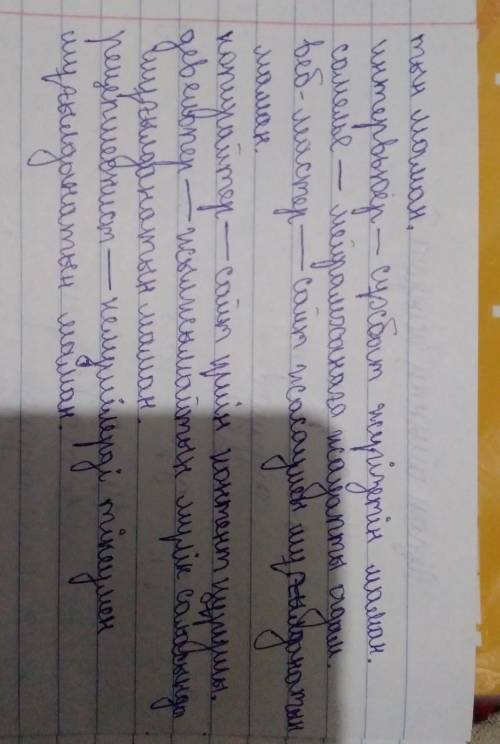 тын маман.
интервьюер – сұхбат жүргізетін маман.
самелье – мейрамханаға жауапты адам.
веб-мастер – сайт жасаумен шұғылданатын
маман.
копирайтер – сайт үшін контент құрушы.
девелопер – жылжымайтын мүлік саласында
шұғылданатын маман.
рецепшионист – келушілерді тіркеумен
шұғылданатын маман.